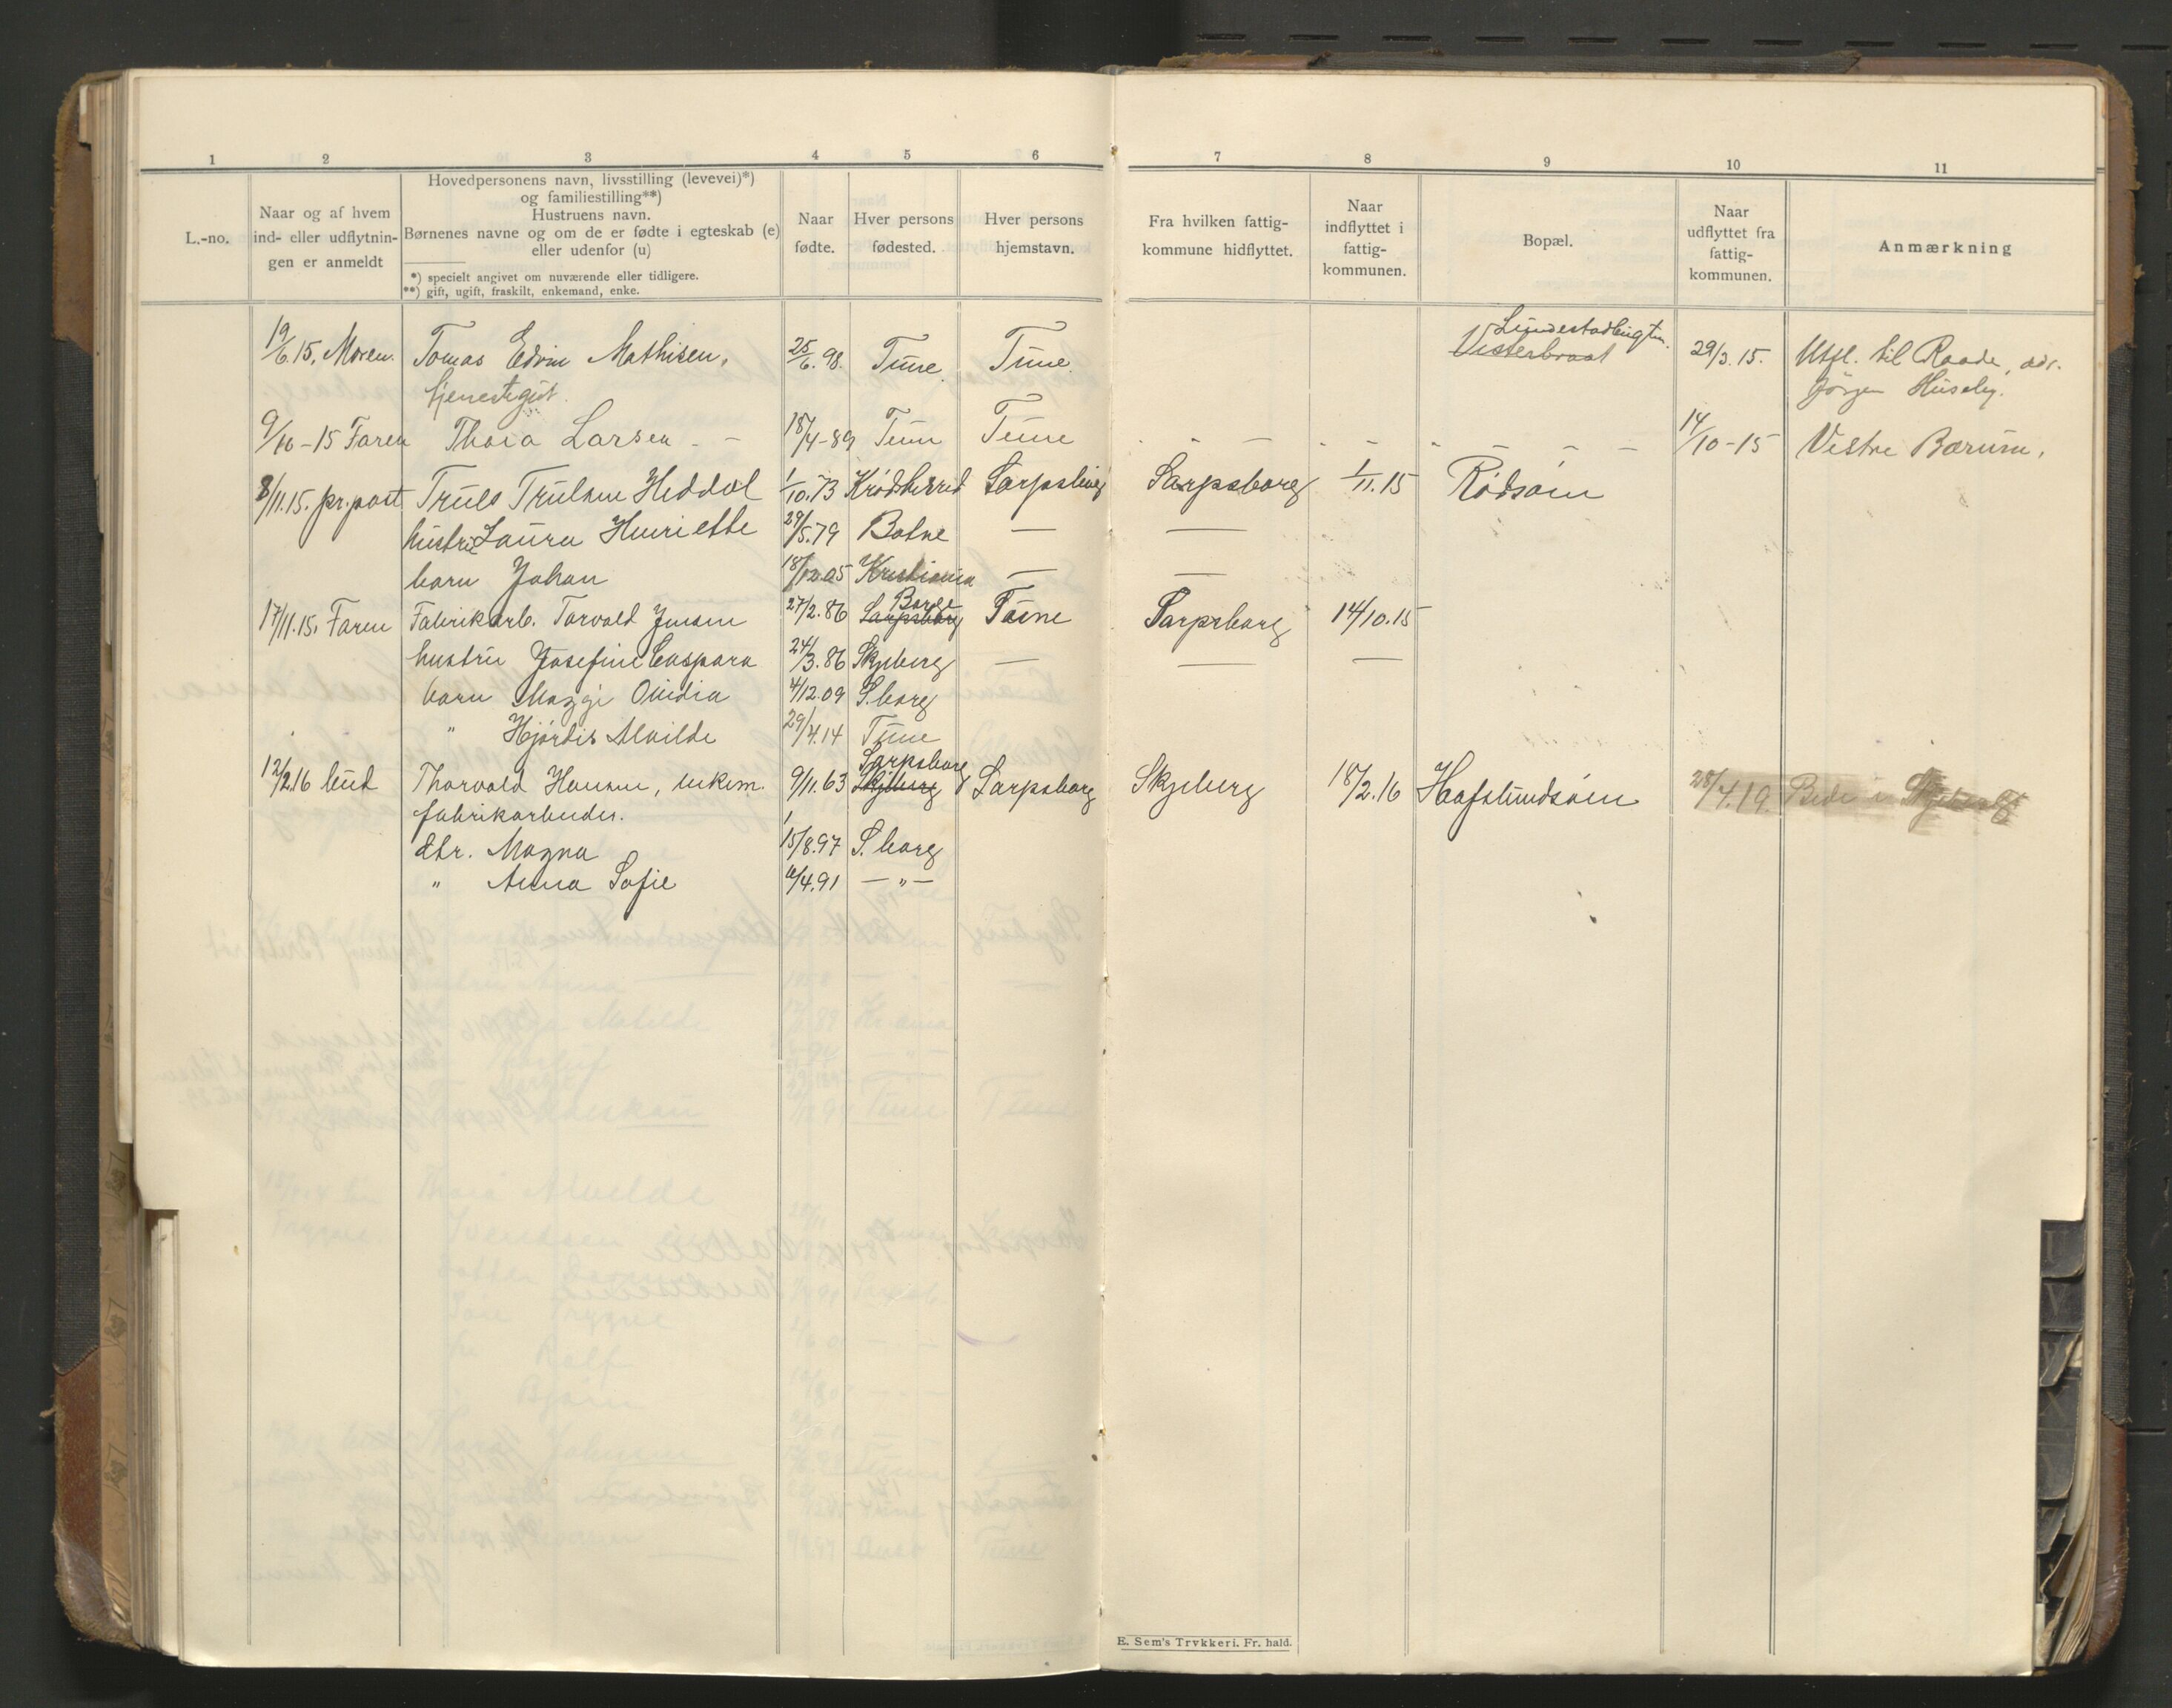 1 2 3 4 5 6 7 8 9 10 11
L.-no.
Naar og af hvem
ind- eller udflytnin-
gen er anmeldt
Hovedpersonens navn, livsstilling (levevei)*)
og familiestilling**)
Hustruens navn.
Børnenes navne og om de er fødte i egteskab (e)
eller udenfor (u)
*) specielt angivet om nuværende eller tidligere.
**) gift, ugift, fraskilt, enkemand, enke.
Naar
fødte.
Hver persons
fødested.
Hver persons
hjemstavn.
Fra hvilken fattig-
kommune hidflyttet.
Naar
indflyttet i
fattig-
kommunen.
Bopæl.
Naar
udflyttet fra
fattig-
kommunen.
Anmærkning
19/6.15. Moren. Tomas Edvin Mathisen, 25/6.98. Tune. Tune. Vesterbraat 29/3.15. Utfl. til Raade, adr.
tjenestegut. Jörgen Huseby.
9/10-15 Faren Thora Larsen - - 18/4-89 Tune Tune - - - - - - - - 14/10-15 Vestre Bærum.
8/11.15. pr. post Truls Trulsen Heddal 1/10.73 Krødsherred Sarpsborg Sarpsborg 1/11.15 Rødsåen
hustru Laura Henriette 29/5.79 Botne — —
barn Johan 18/12.05 Kristiania — —
Borge
17/11.15. Faren Fabrikarb. Torvald Jensen 27/2.86 Sarpsborg Tune Sarpsborg 14/10.15
hustru Josefine Caspara 24/3.86 Skjeberg — — —
barn Maggi Ovidia 4/12.09 S.borg
" Hjørdis Alvilde 29/4.14 Tune
Sarpsborg
12/2.16 bud Thorvald Hansen, enkem. 9/11.63 Skjeberg Sarpsborg Skjeberg 18/2.16 Hafslundsøen 28/4.19.
fabrikarbeider.
dtr. Magna 15/8.97 S.borg
" Anna Sofie 6/4.91 — „ —
E. Sem's Trykkeri. Fr. hald.